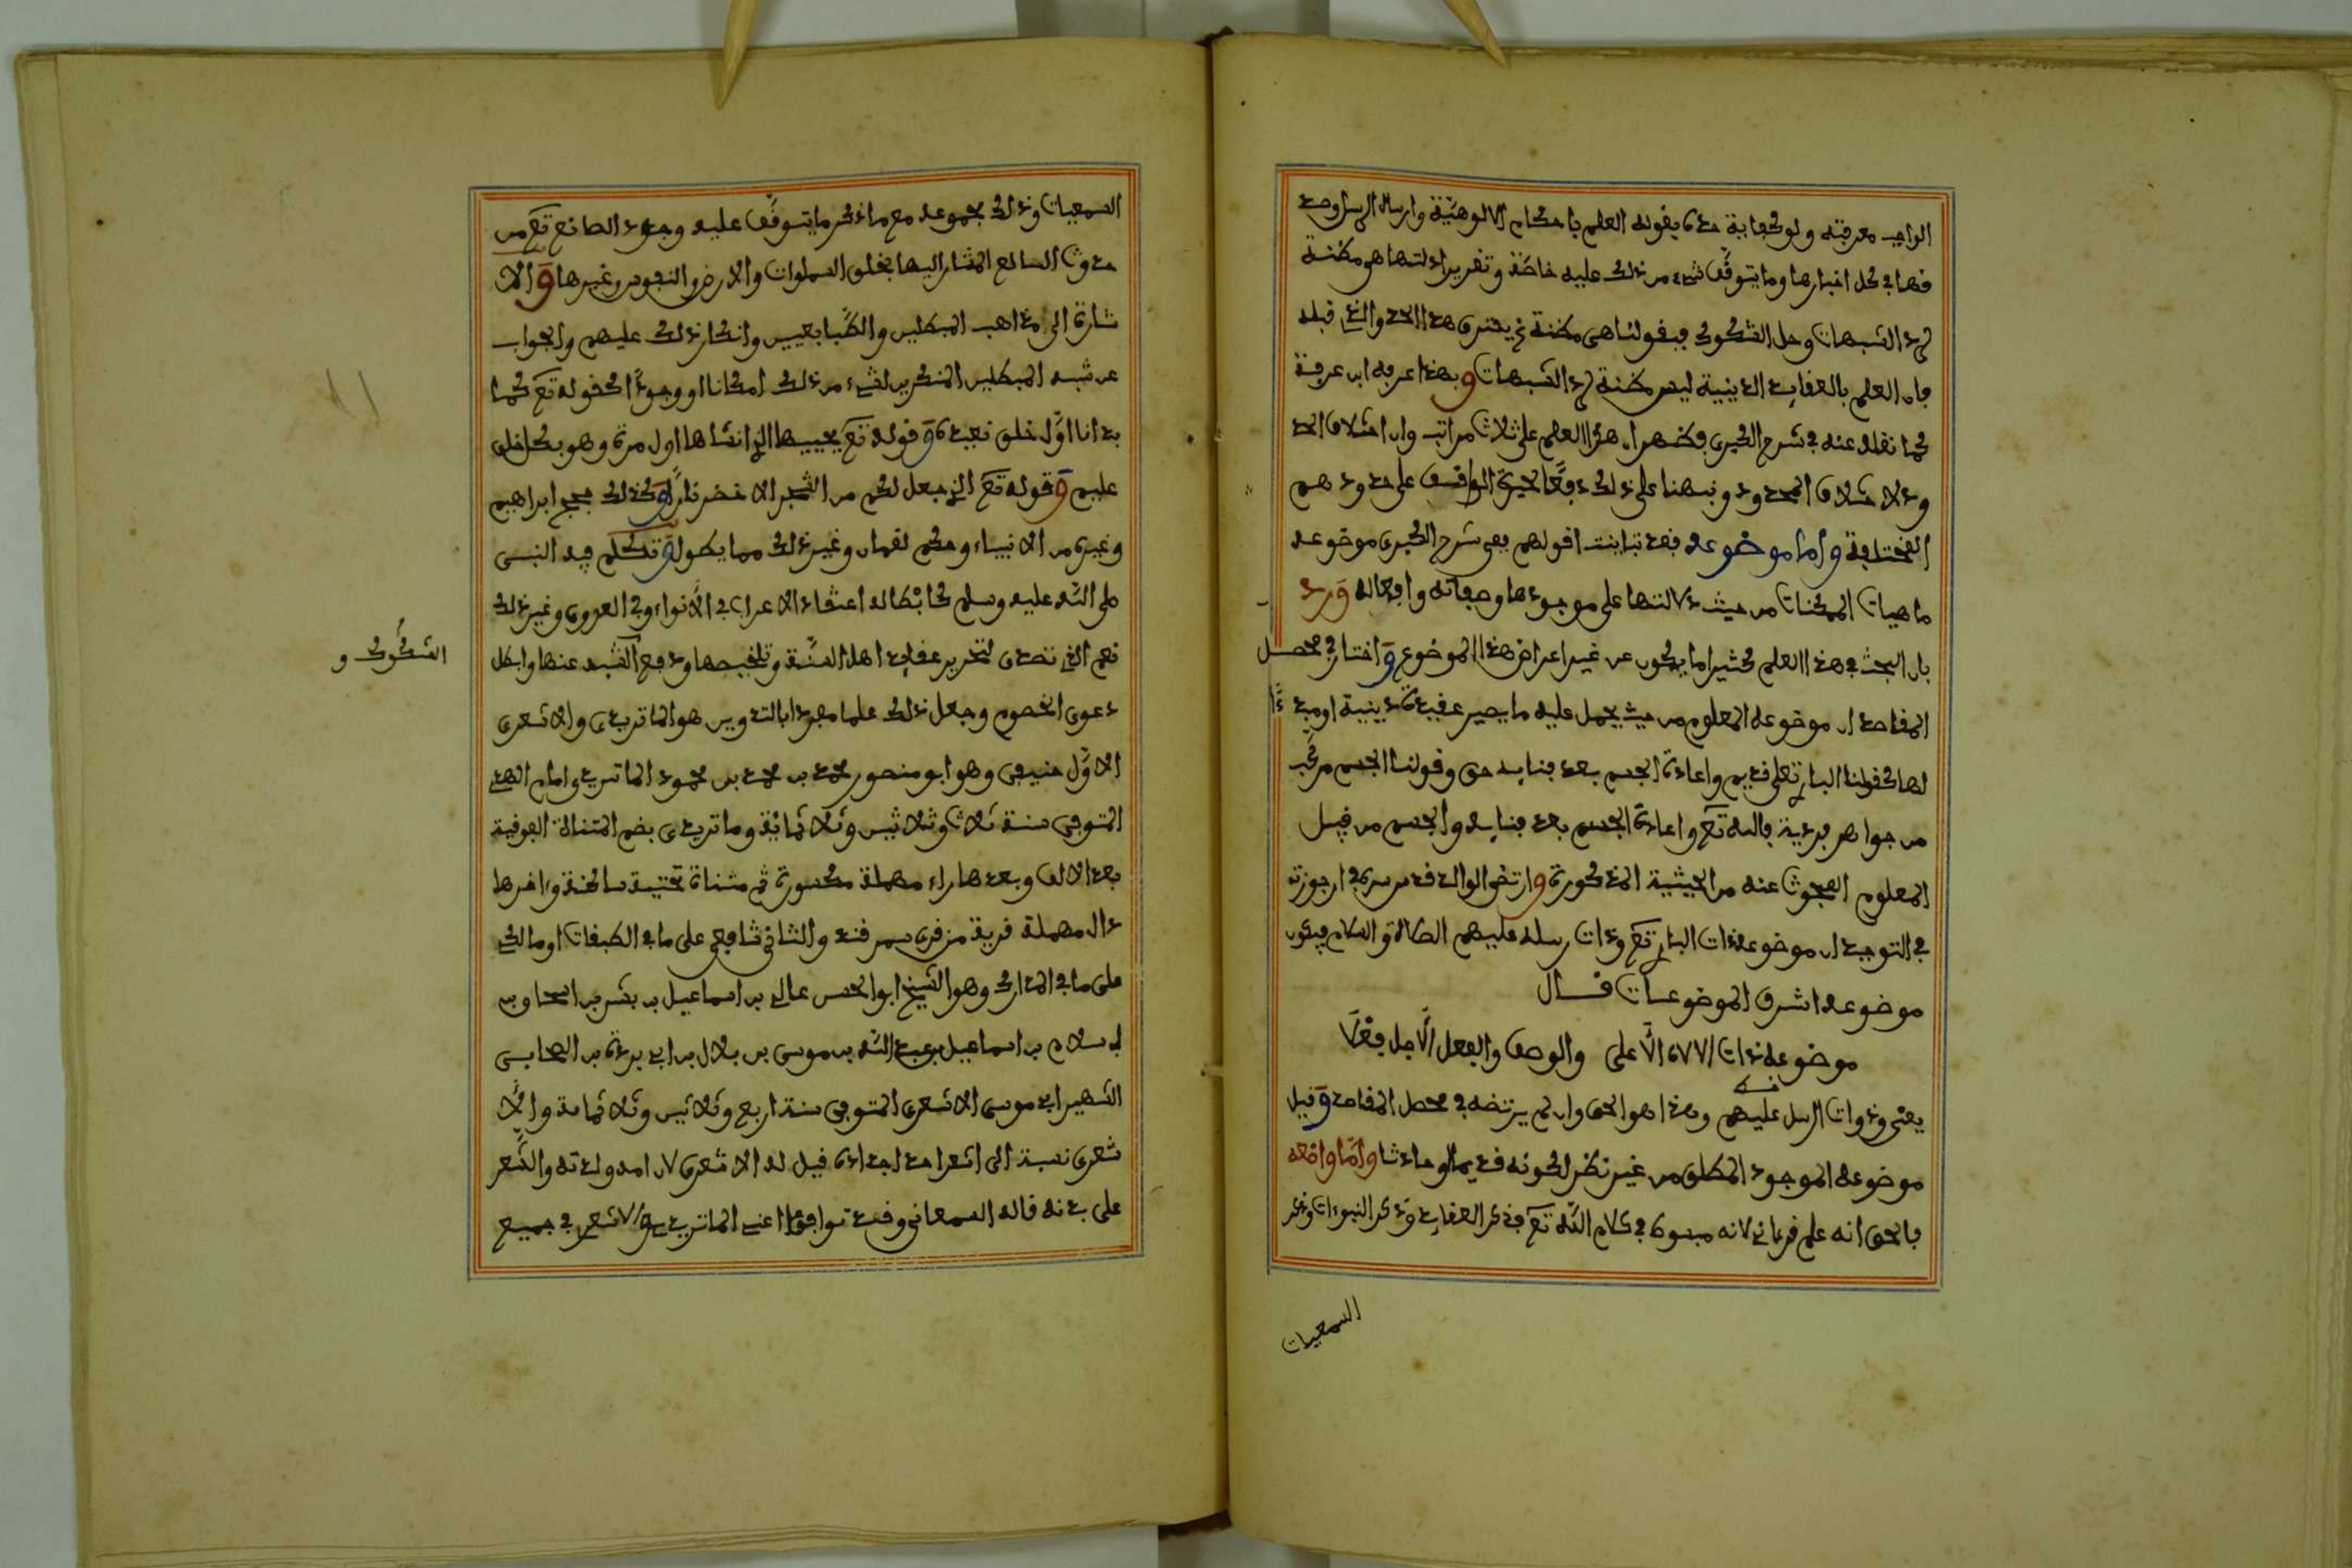 الواجب معرفته ولو كفاية حده بقوله العلم باحكام الالوهيّة وارسال الرسل وصد
فها في كل اخبارها وما يتوقّف شيء من ذلك عليه خاصّة وتقرير ادلتها هو مظنة
لرد الشبهات وحل الشكوك فبقولنا هي مظنة يخرج هذا الحد والذي قبله
فان العلم بالعقايد الدينية ليس مظنة لرد الشبهات وبهذا عرفه ابن عرفة
كما نقله عنه في شرح الكبرى فظهر ان هذا العلم على ثلاث مراتب وان اختلاف الحد
ود لاختلاف المحدود ونبهنا على ذلك دفعًا لحيرة الواقف على حدودهم
المختلفة واما موضوعه فقد تباينت اقولهم ففي شرح الكبرى موضوعه
ماهيات الممكنات من حيث دلالتها على موجودها وصفاته وافعاله ورد
بان البحث في هذا العلم كثيرا ما يكون عن غير اعراض هذا الموضوع واختار في محصل
المقاصد ان موضوعه المعلوم من حيث يحمل عليه ما يصير عقيدة دينية او مبدءًا
لها كقولنا الباري تعلى قديم واعادة الجسم بعد فنايه حق وقولنا الجسم مركّب
من جواهر فردية فالله تع واعادة الجسم بعد فنايه والجسم من قبيل
المعلوم المبحوث عنه من الحيثية المذكورة وارتضى الوالد قدس سره في ارجوزته
في التوحيد ان موضوعه ذات الباري تع وذات رسله عليهم الصلاة والسلام فيكون
موضوعه اشرف الموضوعات قــال
موضوعه ذات الالاه الأعلى والوصف والفعل الأجل فعْلَا
يعني وذوات الرسل عليهم وهذا هو الحق وان لم يرتضه في محصل المقاصد وقيل
موضوعه الموجود المطلق من غير نظر لكونه قديما او حادثا وامّا واضعه
فالحق انه علم قرءاني لانه مبسوط في كلام الله تع فذكر العقايد وذكر النبوءات وذكر
السمعيات
السمعيات وذلك مجموعه مع ما ذكر ما يتوقّف عليه وجود الصانع تع من
حدوث العالم المشار اليها بخلق السماوات والارض والنجوم وغيرها والا
شارة الى مذاهب المبطلين والطّبايعيين وانكار ذلك عليهم والجواب
عن شبه المبطلين المنكرين لشيء من ذلك امكانا او وجودًا كقوله تع كما
بدانا اوّل خلق نعيده وقوله تع يحييها الذي انشاها اول مرة وهو بكل خلق
عليم وقوله تع الذي جعل لكم من الشجر الاخضر نارًا وكذلك حجج ابراهيم
وغيره من الانبياء وحكم لقمان وغير ذلك مما يطول وتكلم فيه النبي
صلى الله عليه وسلم كابطاله اعتقاد الاعراب في الأنواء وفي العدوى وغير ذلك
نعم الذي تصدى لتحرير عقايد اهل السنّة وتلخيصها ودفع الشبه عنها وابطل
الشكوك و
دعوى الخصوم وجعل ذلك علما مفردا بالتدوين هو الماتريدي والاشعري
الاوّل حنيفي وهو ابو منصور محمد بن محمد بن محمود الماتريدي امام الهدى
المتوفى سنة ثلاث وثلاثين وثلاثمائة وماتريدي بضم المتناة الفوفية
بعد الالف وبعدها راء مهملة مكسورة ثم مثناة تحتية ساكنة وءاخرها
دال مهملة قرية من قرى سمرقند والثاني شافعي على ما في الطبقات او مالكي
على ما في المدارك وهو الشيخ ابو الحسن علي بن اسماعيل بن بشر بن اسحاق بن
سلام بن اسماعيل بن عبد الله بن موسى بن بلال بن ابي بردة بن الصحابي
الشهير ابي موسى الاشعري المتوفى سنة اربع وثلاثين وثلاثمائة والأ
شعري نسبة الى اشعر احد اجداده قيل له الاشعري لان امه ولدته والشّعر
على بدنه قاله السمعاني وقد توافقا اعني الماتريدي والاشعري في جميع